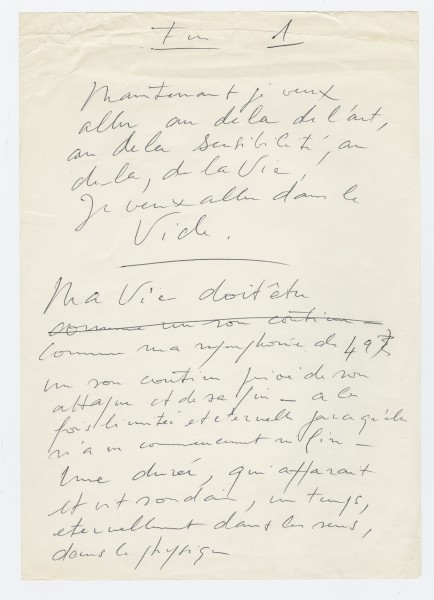 1
Maintenant je veux
aller au dela de l'art,
au dela sensibilité, au
dela, de la Vie,
Je veux aller dans le
Vide.
Ma Vie doit être
comme un son continu
comme ma symphonie de 49
un son continu privé de son
attaque et de sa fin – a la
fois limitée et eternelle parcequ'elle
n'a ni commencement ni fin –
Une durée, qui apparait
et vit soudain, un temps,
eternellement dans les sens,
dans le physique